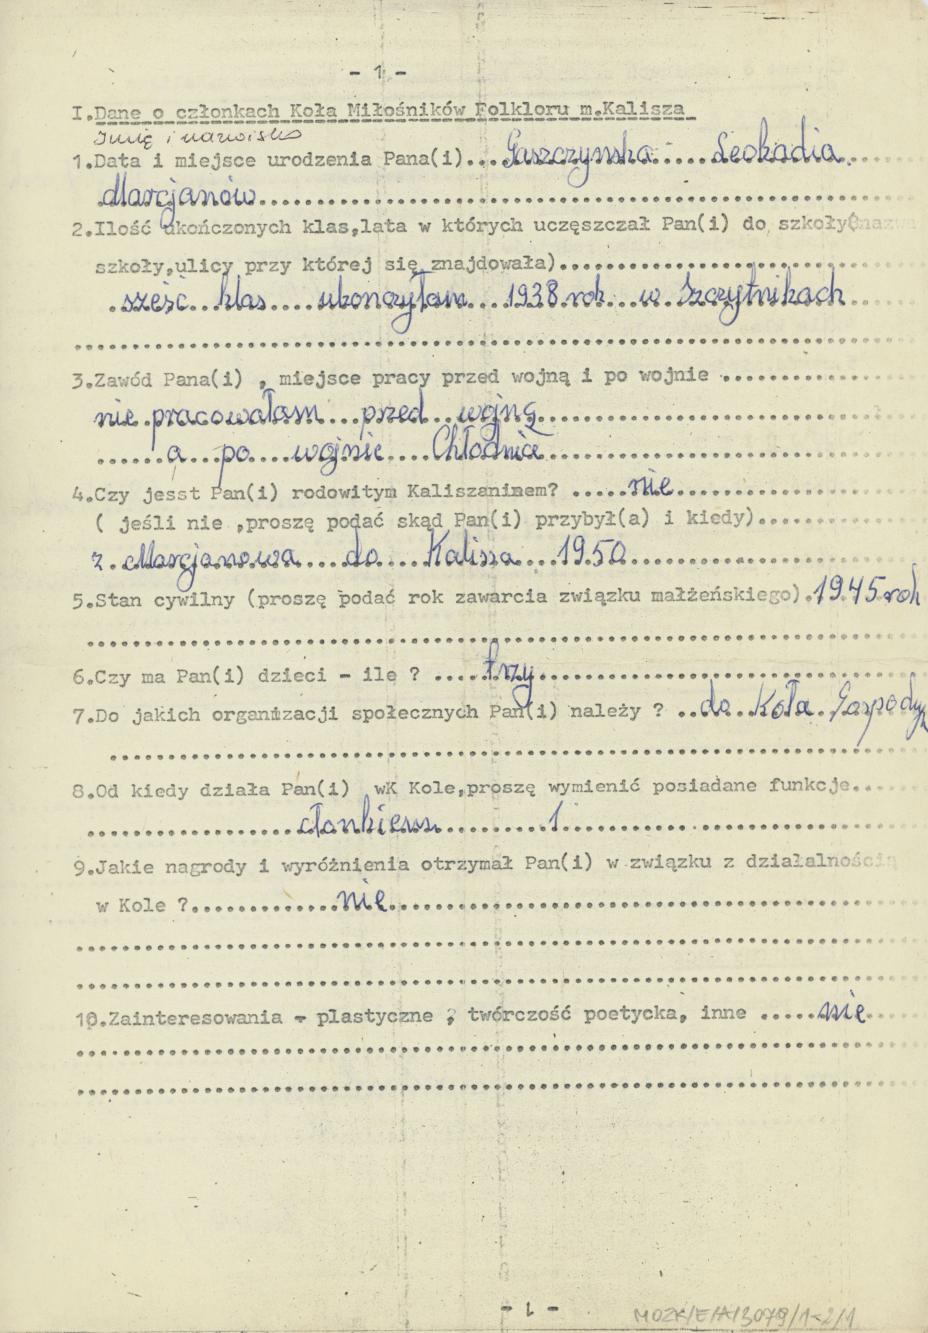 - 1 -
I.Dane o członkach Koła Miłośników Folkloru m.Kalisza
Imię i nazwisko
1.Data i miejsce urodzenia Pana(i)...Gaszczynska.....Leokadia.
Marcjanów
2.Ilość ukończonych klas,lata w których uczęszczał Pan(i) do szkoły(nazwa
szkoły,ulicy przy której się znajdowała)
sześć klas ukonczyłam 1938 rok w Szczytnikach
3.Zawód Pana(i) , miejsce pracy przed wojną i po wojnie
nie pracowałam przed wojną
a po wojnie Chłodnice
4.Czy jesst Pan(i) rodowitym Kaliszaninem? nie
( jeśli nie ,proszę podać skąd Pan(i) przybył(a) i kiedy)
z Marcjanowa do Kalisza 1950
5.Stan cywilny (proszę podać rok zawarcia związku małżeńskiego).1945 rok
6.Czy ma Pan(i) dzieci - ile ? trzy
7.Do jakich organizacji społecznych Pan(i) należy ? do Koła Gospodyń
8.Od kiedy działa Pan(i) wK Kole,proszę wymienić posiadane funkcje
członkiem 1
9.Jakie nagrody i wyróżnienia otrzymał Pan(i) w związku z działalnością
w Kole ? nie
10.Zainteresowania - plastyczne , twórczość poetycka, inne nie
- 1 -
MOZK/E/A/3079/1-2/1